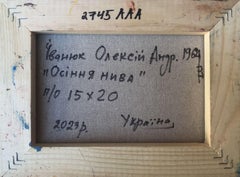 2745 AAA
Іванюк Олексій Андр. 1964
"Осіння нива"
п/о 15х20
2023р. Україна